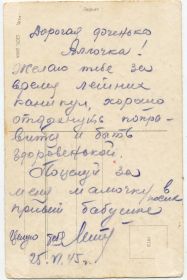 Дорогая доченька
Аллочка!
Желаю тебе за
время летних
каникул, хорошо
отдохнуть попра-
вится и быть
здоровенькой.
Поцелуй за
меня мамочку в носик
привет бабусе
Целую тебя
25.VI.45 г.